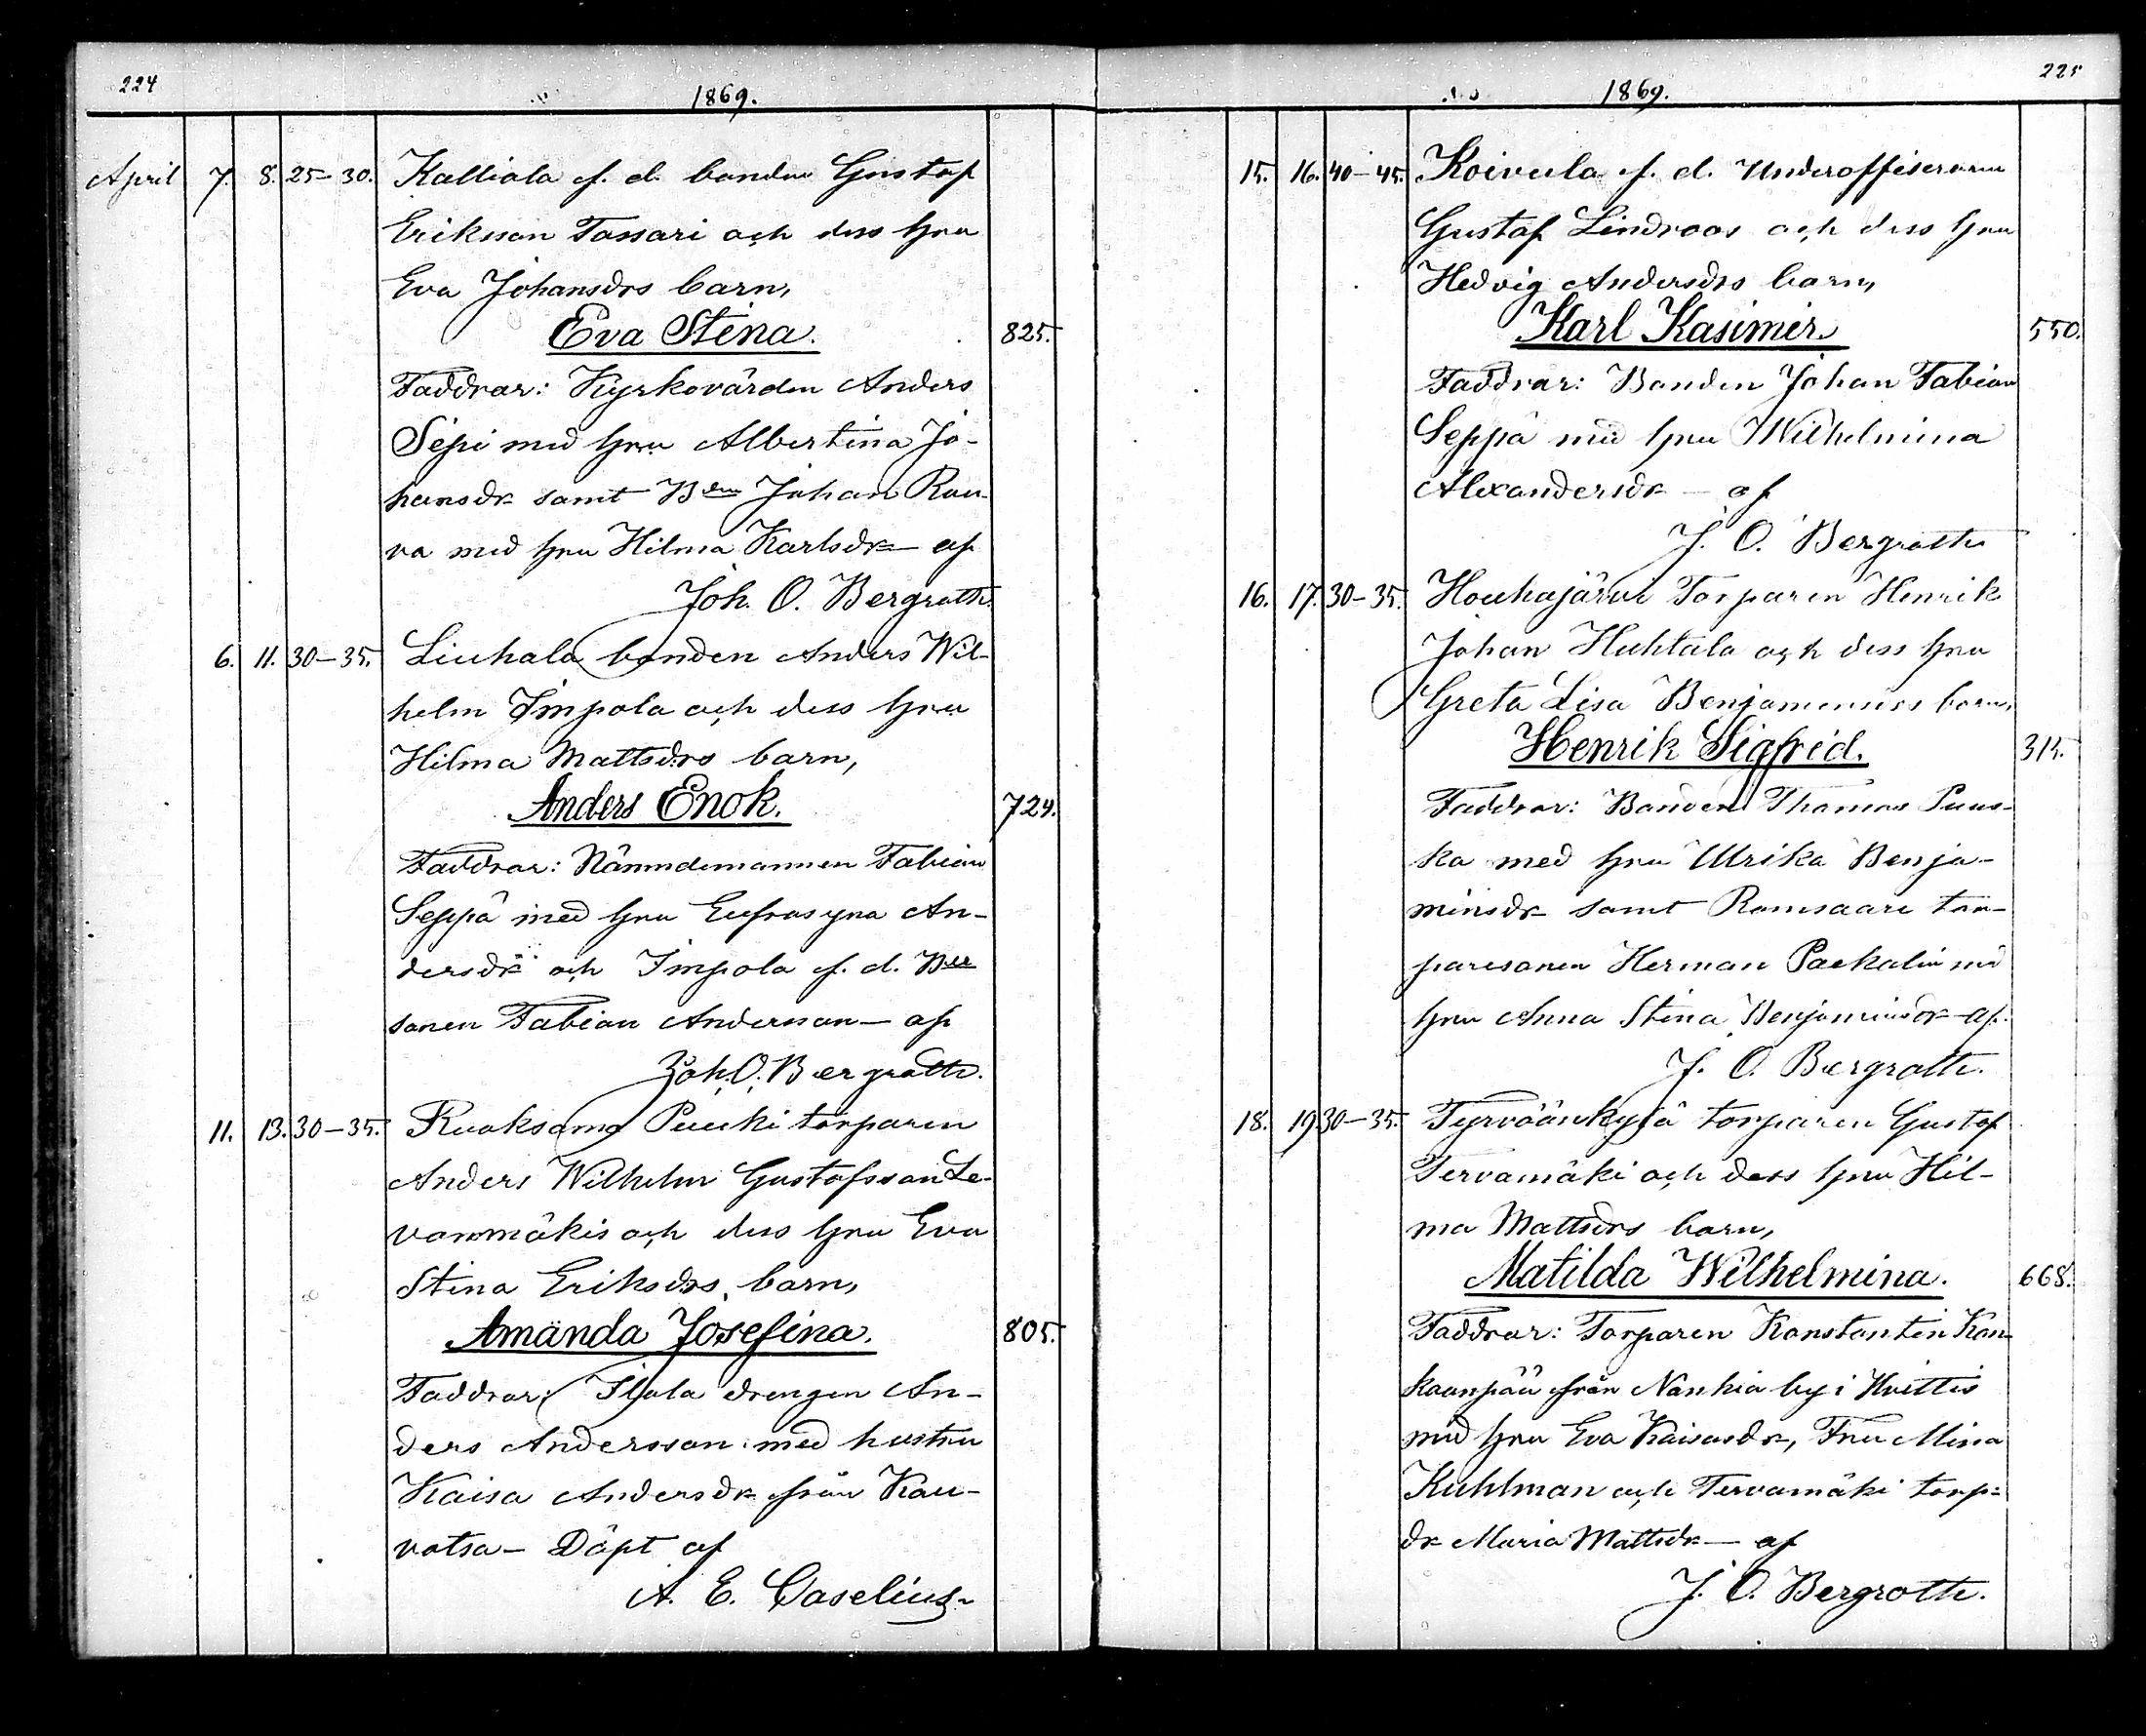 224
1869.
April 7. 8. 25–30. Kalliala f. d. bonden Gustaf
Eriksson Tassari och dess hru
Eva Johansdrs barn,
Eva Stina. 825.
Faddrar: Kyrkovärden Anders
Sepi med hru Albertina Jo-
hansdr samt Bden Johan Rau-
va med hru Hilma Karlsdr — af
Joh. O. Bergroth.
6. 11. 30–35. Liuhala bonden Anders Wil-
helm Impola och dess hru
Hilma Mattsdrs barn,
Anders Enok. 724.
Faddrar: Nämndemannen Fabian
Seppä med hru Eufrosyna An-
dersdr och Impola f. d. Bde
sonen Fabian Andersson — af
Joh. O. Bergroth.
11. 13. 30–35. Ruoksamo Puuki torparen
Anders Wilhelm Gustafsson Le-
vonmäkis och dess hru Eva
Stina Eriksdrs barn,
Amanda Josefina. 805.
Faddrar: drengen An-
ders Andersson med hustru
Kaisa Andersdr från Kau-
vatsa – Döpt af
A. E. Caselius.
225
1869.
15. 16. 40–45. Koivula f. d. Underofficeraren
Gustaf Lindroos och dess hru
Hedvig Andersdrs barn,
Karl Kasimir. 550.
Faddrar: Bonden Johan Fabian
Seppä med hru Wilhelmina
Alexandersdr — af
J. O. Bergroth
16. 17. 30–35. Houhajärvi Torparen Henrik
Johan Huhtala och dess hru
Greta Lisa Benjaminsdrs barn,
Henrik Sigfrid. 315.
Faddrar: Bonden Thomas Puus-
ka med hru Ulrika Benja-
minsdr samt Romsaari tor-
paresonen Herman Packalin med
hru Anna Stina Benjaminsdr – af
J. O. Bergroth.
18. 19. 30–35. Tyrväänkylä torparen Gustaf
Tervamäki och dess hru Hil-
ma Mattsdrs barn,
Matilda Wilhelmina. 668.
Faddrar: Torparen Konstantin Kan-
kaanpää från Nanhia by i Huittis
med hru Eva Kaisasdr, Fru Mina
Kuhlman och Tervamäki torp=
dr Maria Mattsdr — af
J. O. Bergroth.